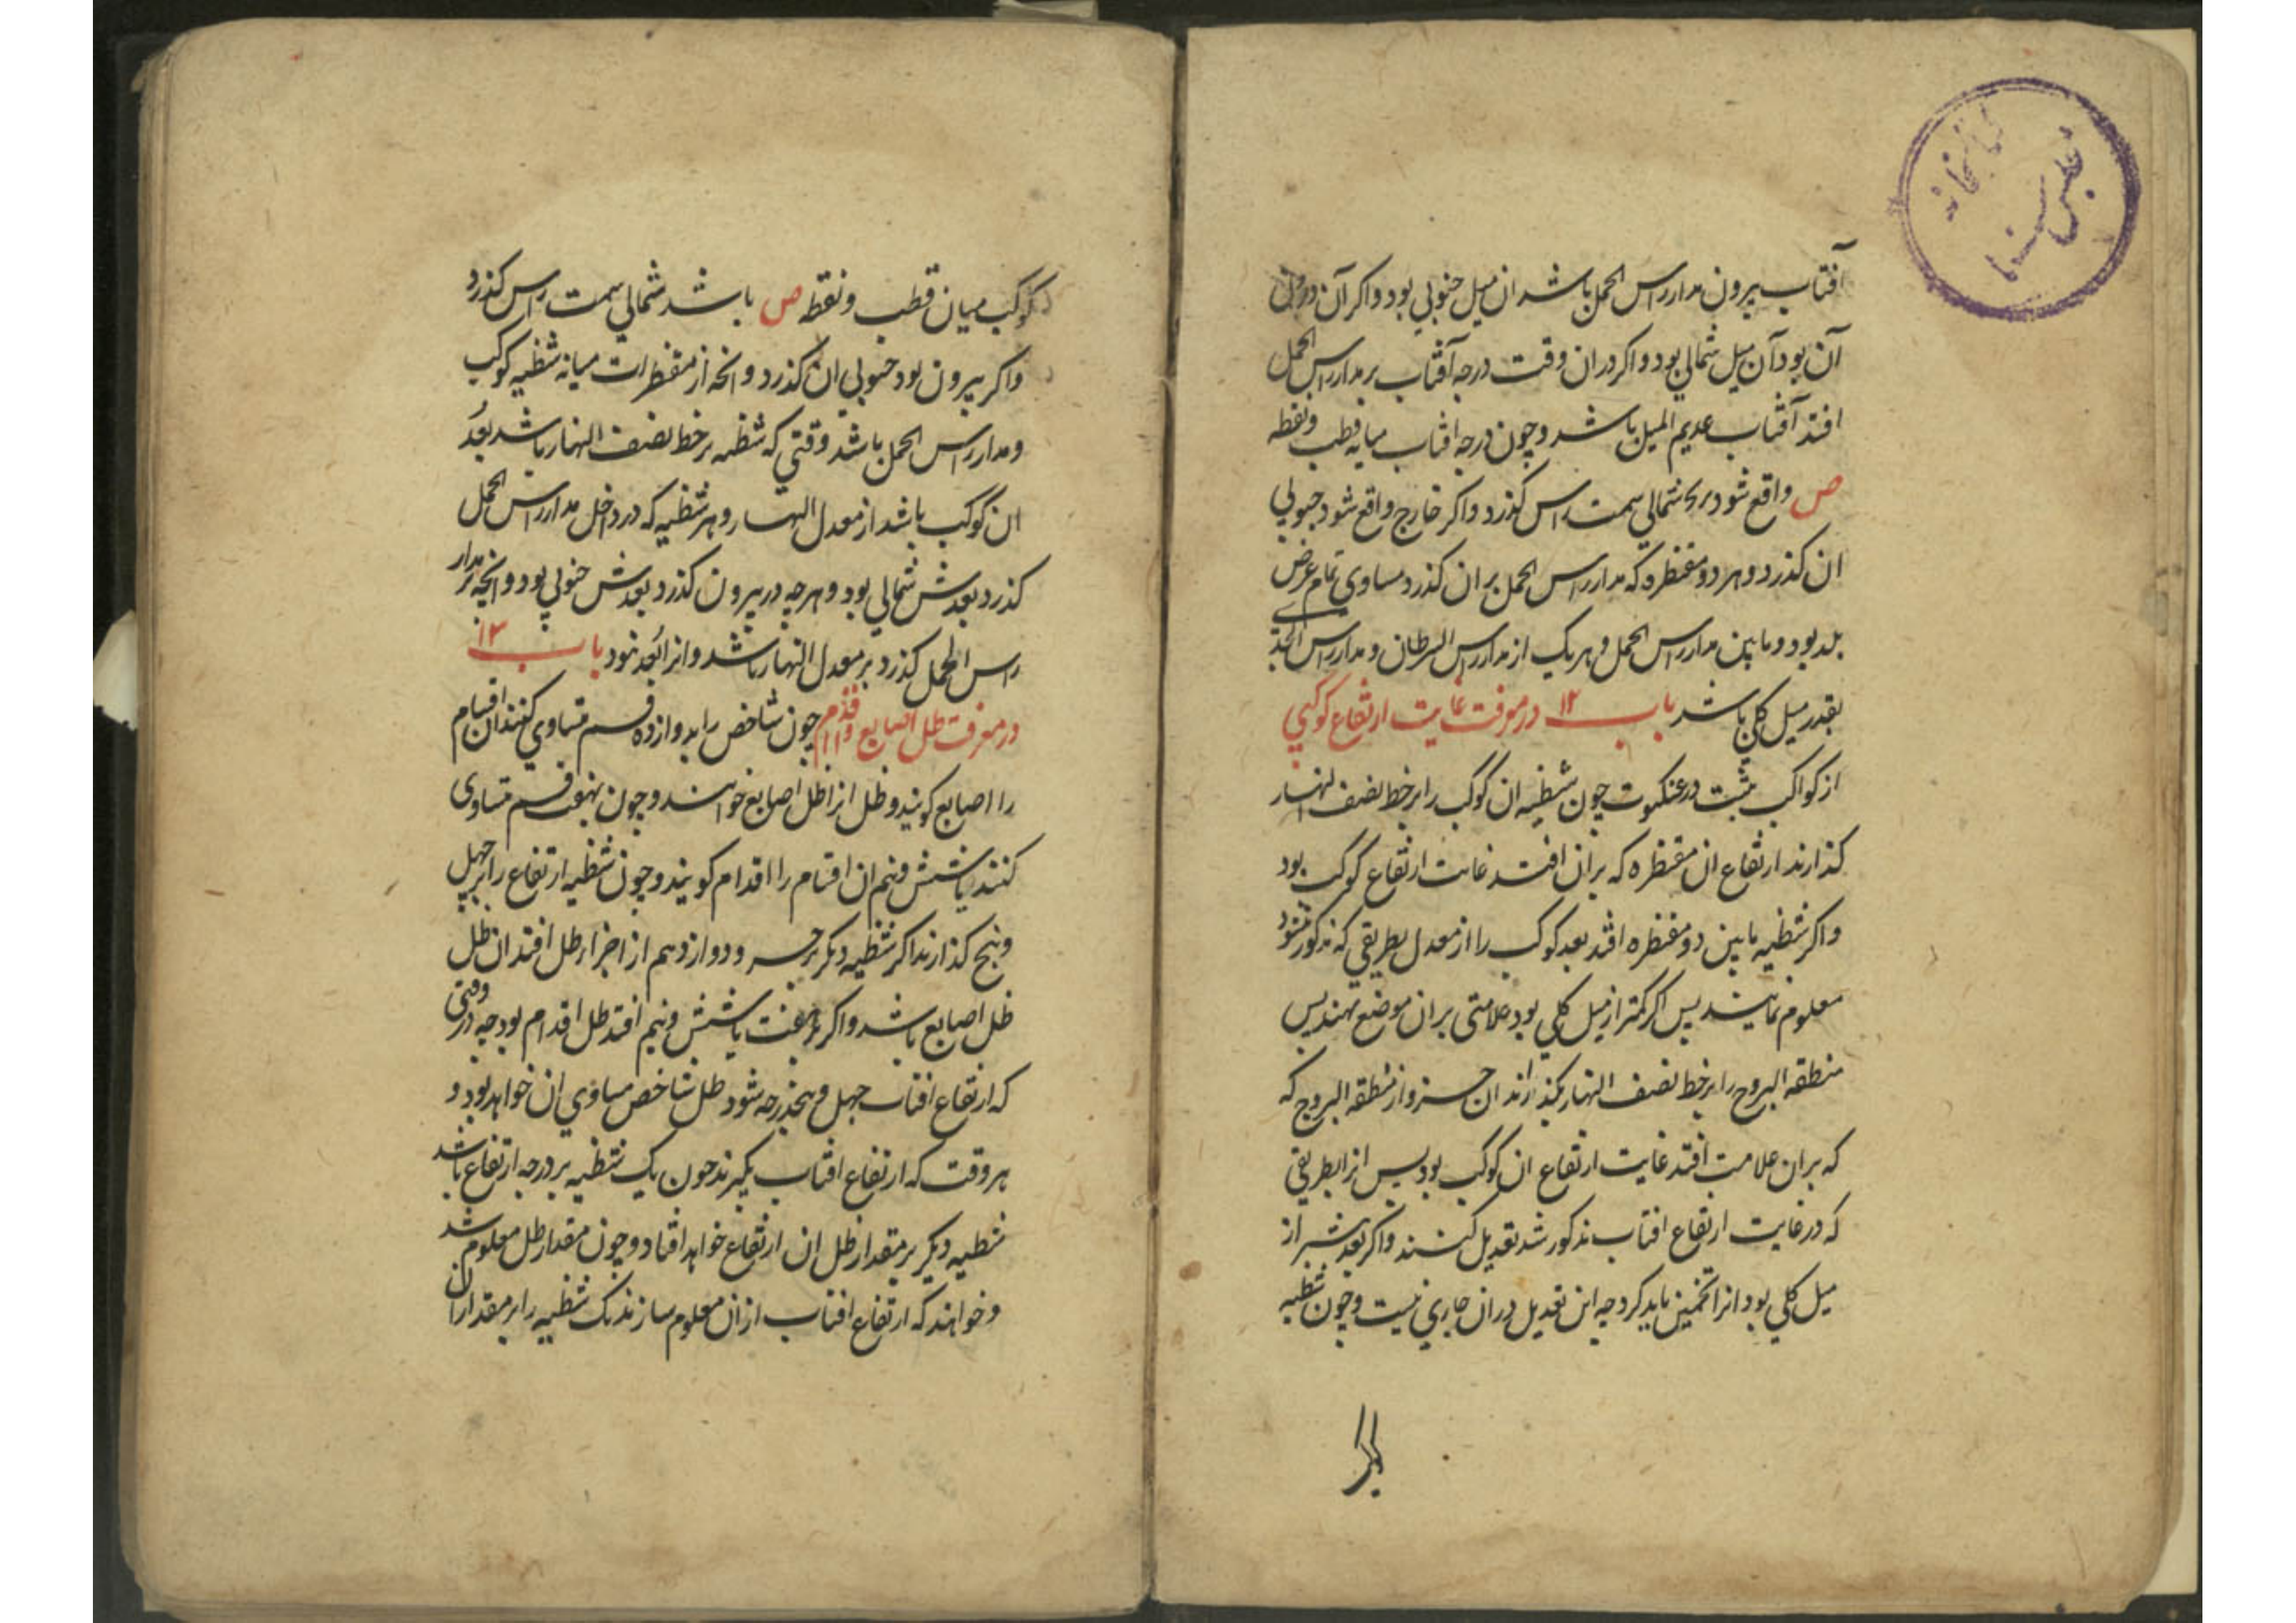 آفتاب بیرون مدار راس الحمل باشد ان میل جنوبی بود واکر آن درون
آن بود آن میل شمالی بود و اکر دران وقت درجه آفتاب بر مدار راس الحمل
افتد آفتاب عدیم المیل باشد و چون درجه افتاب میانه قطب و نقطه
ص واقع شود شمالی سمت راس کذرد واکر خارج واقع شود جنوبی
ان کذرد و هر دو مقنطره که مدار راس الحمل بر ان کذرد مساوی تمام عرض
بلد بود و مابین مدار راس الحمل و هریک از مدار راس السرطان و مدار راس الجدی
بقدر میل کلی باشد باب ۱۲ در معرفت غایت ارتفاع کوکبی
از کواکب مثبت در عنکبوت چون شظیه ان کوکب را بر خط نصف النهار
کذارند ارتفاع ان مقنطره که بران افتد غایت ارتفاع کوکب بود
واکر شظیه مابین دو مقنطره افتد بعد کوکب را از معدل بطریقی که مذکور شود
معلوم نمایند پس اکر کمتر از میل کلی بود علامتی بران موضع نهند پس
منطقه البروج را بر خط نصف النهار بکذرانند ان جزو از منطقه البروج که
که بران علامت افتد غایت ارتفاع ان کوکب بود پس انرا بطریقی
که در غایت ارتفاع افتاب مذکور شد تعدیل کنند واکر بعدش از
میل کلی بود انرا تخمین باید کرد چه این تعدیل دران جاری نیست و چون شظیه
کوکب میان قطب و نقطه ص باشد شمالی سمت راس کذرد
واکر بیرون بود جنوبی ان کذرد و انچه از مقنطرات میانه شظیه کوکب
و مدار راس الحمل باشد وقتی که شظیه بر خط نصف النهار باشد بعد
ان کوکب باشد از معدل النهار و هر شظیه که در داخل مدار راس الحمل
کذرد بعدش شمالی بود و هرچه در بیرون کذرد بعدش جنوبی بود و انچه بر مدار
راس الحمل کذرد بر معدل النهار باشد و انرا بعد نبود باب ۱۳
در معرفت ظل اصابع و اقدام چون شاخص را بدوازده قسم متساوی کنند ان اقسام
را اصابع کویند و ظل انرا ظل اصابع خوانند و چون بهفت قسم متساوی
کنند یا شش و نیم ان اقسام را اقدام کویند و چون شظیه ارتفاع را بر چهل
و پنج کذارند اکر شظیه دیکر بر جزو دوازدهم از اجزار ظل افتد ان ظل
ظل اصابع باشد واکر بر هفت یا شش و نیم افتد ظل اقدام بود چه در وقتی
که ارتفاع افتاب چهل و پنجدرجه شود ظل شاخص مساوی ان خواهد بود و
هر وقت که ارتفاع افتاب بکیرند چون یک شظیه بر درجه ارتفاع باشد
شظیه دیکر بر مقدار ظل ان ارتفاع خواهد افتاد و چون مقدار ظل معلوم باشد
و خواهند که ارتفاع افتاب ازان معلوم سازند یک شظیه را بر مقدار ان